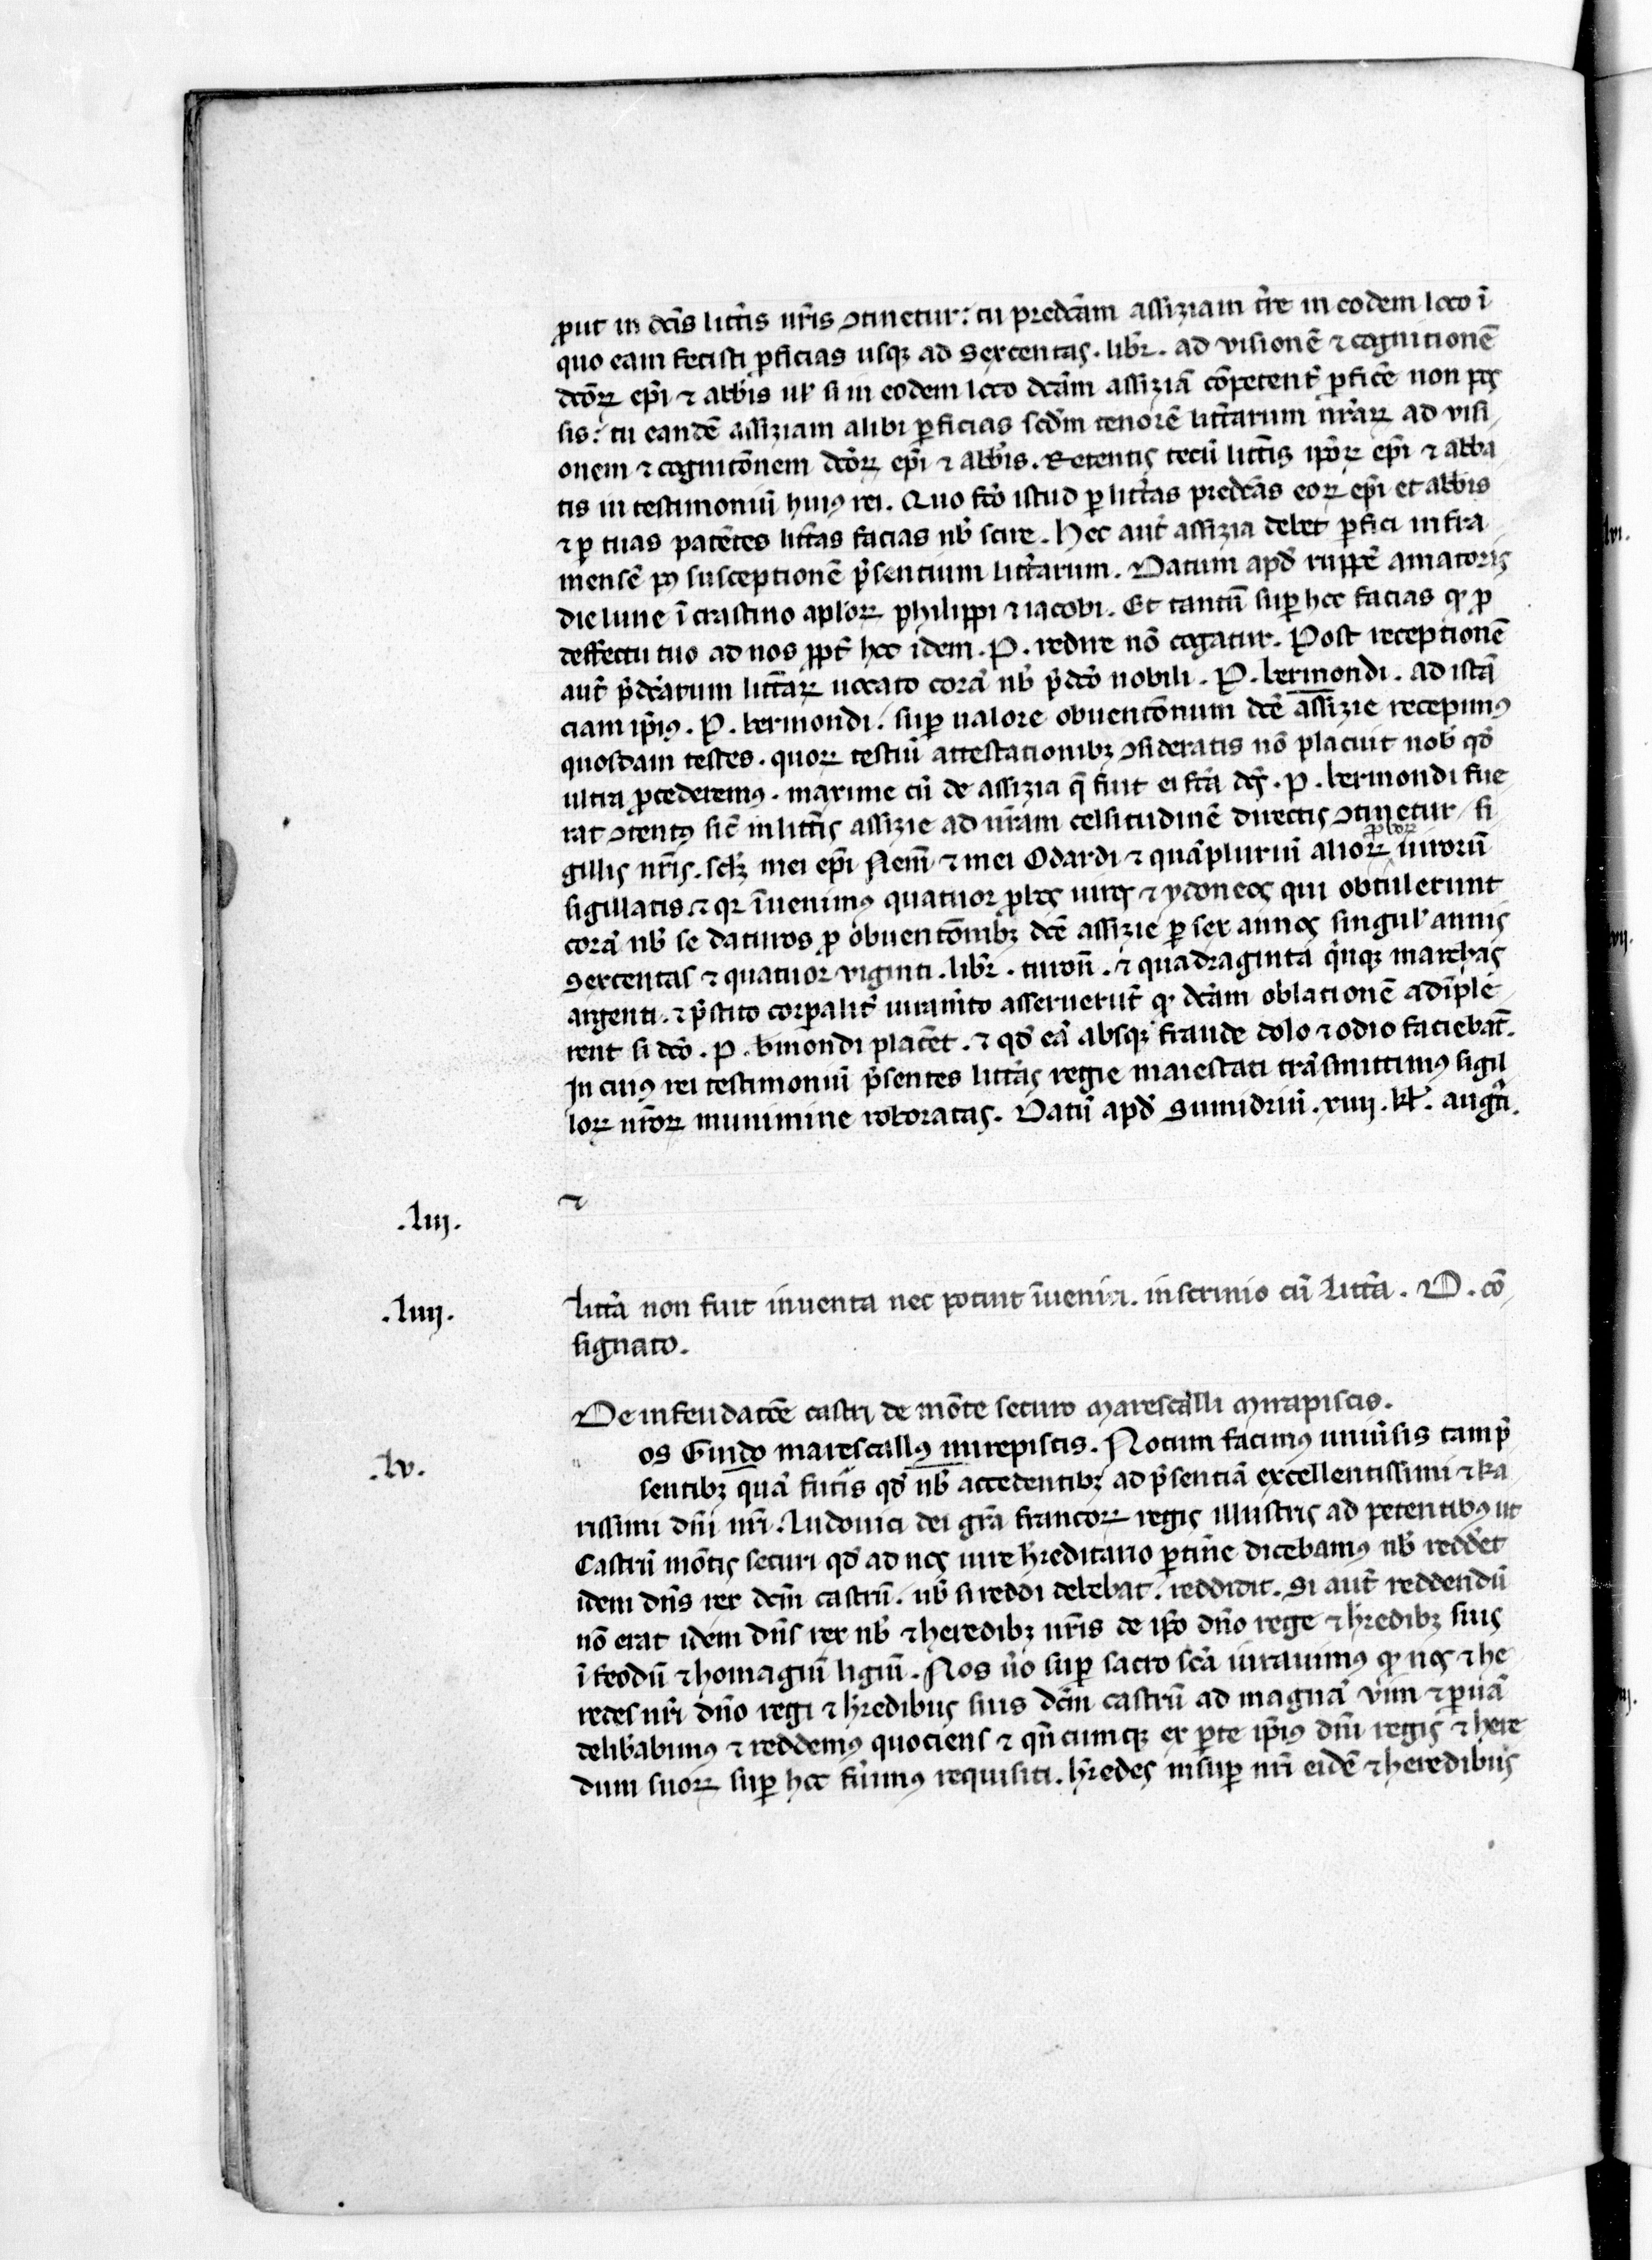 ꝓut in dc̄is litt̄is nr̄is ꝯtinetur: tu predc̄am assiziam tr̄re in eodem loco ī
quo eam fecisti ꝑficias usqꝫ ad Sexcentas. libr̄. ad visionē ⁊ cognitionē
dc̄oꝝ ep̄i ⁊ abb̄is ul̄ si in eodem loco dc̄am assiziā cōpetent̄ ꝑfic̄e non pos
sis: tu eandē assiziam alibi ꝑficias scd̄m tenorē litt̄arum nr̄aꝝ ad visi
onem ⁊ cognitōnem dc̄oꝝ ep̄i ⁊ abb̄is. Retentis tecū litt̄is ip̄oꝝ ep̄i ⁊ abba
tis in testimoniū huiꝯ rei. Quo fc̄o istud ꝑ litt̄as predc̄as eoꝝ ep̄i et abb̄is
⁊ ꝑ tuas patētes litt̄as facias nob̄ scire. Hec aut̄ assizia debet ꝑfici infra
mensē pꝯ susceptionē p̄sentium litt̄arum. Datum apd̄ ruppē amatoris
die lune ī crastino apl̄oꝝ philippi ⁊ iacobi. Et tantū suꝑ hoc facias qꝫ ꝓ
deffectu tuo ad nos ꝓpt̄ hoc idem. P. redire nō cogatur. Post receptionē
aut̄ p̄dc̄arum litt̄aꝝ uocato corā nob̄ p̄dc̄o nobili. P. bermondi. ad istā
ciam ip̄iꝯ. P. bermondi. suꝑ ualore obuentōnum dc̄e assizie recepimꝯ
quosdam testes. quoꝝ testiū attestationibꝫ ꝯsideratis nō placuit nob̄ qd̄
ultra ꝓcederemꝯ. maxime cū de assizia q̄ fuit ei fc̄a dc̄s. P. bermondi fue
rat ꝯtentꝯ sic̄ in litt̄is assizie ad nr̄am celsitudinē directis ꝯtinetur si
gillis nr̄is. scl̄ꝫ mei ep̄i Nem̄ ⁊ mei Odardi ⁊ quāpluriū alioꝝ ꝓboꝝ uirorū
sigillatis ⁊ qꝫ īuenimꝯ quatuor ꝓbos uiros ⁊ ydoneos qui obtulerunt
corā nob̄ se daturos ꝓ obuentōnibꝫ dc̄e assizie ꝑ sex annos singul̄ annis
Sexcentas ⁊ quatuor viginti. libr̄. turon̄. ⁊ quadraginta q̄nqꝫ marchas
argenti. ⁊ p̄stito corꝑalit̄ iuram̄to asseruerūt qꝫ dc̄am oblationē adīple
rent si dc̄o. P. b̄mondi placet. ⁊ qd̄ eā absqꝫ fraude dolo ⁊ odio faciebāt.
In cuiꝯ rei testimoniū p̄sentes litt̄as regie maiestati trāsmittimꝯ sigil
loꝝ nr̄oꝝ munimine roboratas. Datū apd̄ Sumidriū. xiiij. kl̄. augti.
.liij.
⁊
.liiij.
Litt̄a non fuit inuenta nec potuit īueniri. in scrinio cū Litt̄a. D. cō
signato.
De infeudatōe castri de mōte securo marescalli mirapiscis.
.lv.
os Guido marescallꝯ mirepiscis. Notum facimꝯ uniūsis tam p̄
sentibꝫ quā futīs qd̄ nob̄ accedentibꝫ ad p̄sentiā excellentissimi ⁊ ka
rissimi dn̄i nr̄i. Ludouici dei gr̄a francoꝝ regis illustris ad petentibꝯ ut
Castrū mōtis securi qd̄ ad nos iure h̄reditario ꝑtine dicebamꝯ nob̄ redd̄et
idem dn̄s rex dc̄m castrū. nob̄ si reddi debebat. reddidit. Si aut̄ reddendū
nō erat idem dn̄s rex nob̄ ⁊ heredibꝫ nr̄is de ip̄o dn̄o rege ⁊ h̄redibꝫ suis
ī feodū ⁊ homagiū ligiū. Nos u̅o suꝑ sacro sc̄a iurauimꝯ qꝫ nos ⁊ he
redes nr̄i dn̄o regi ⁊ h̄redibus suis dc̄m castrū ad magnā vim ⁊ ꝑuā
delib̄abimꝯ ⁊ reddemꝯ quociens ⁊ qn̄cumqꝫ ex ꝑte ip̄iꝯ dn̄i regis ⁊ here
dum suoꝝ suꝑ hoc fūimꝯ requisiti. h̄redes insuꝑ nr̄i eidē ⁊ heredibus